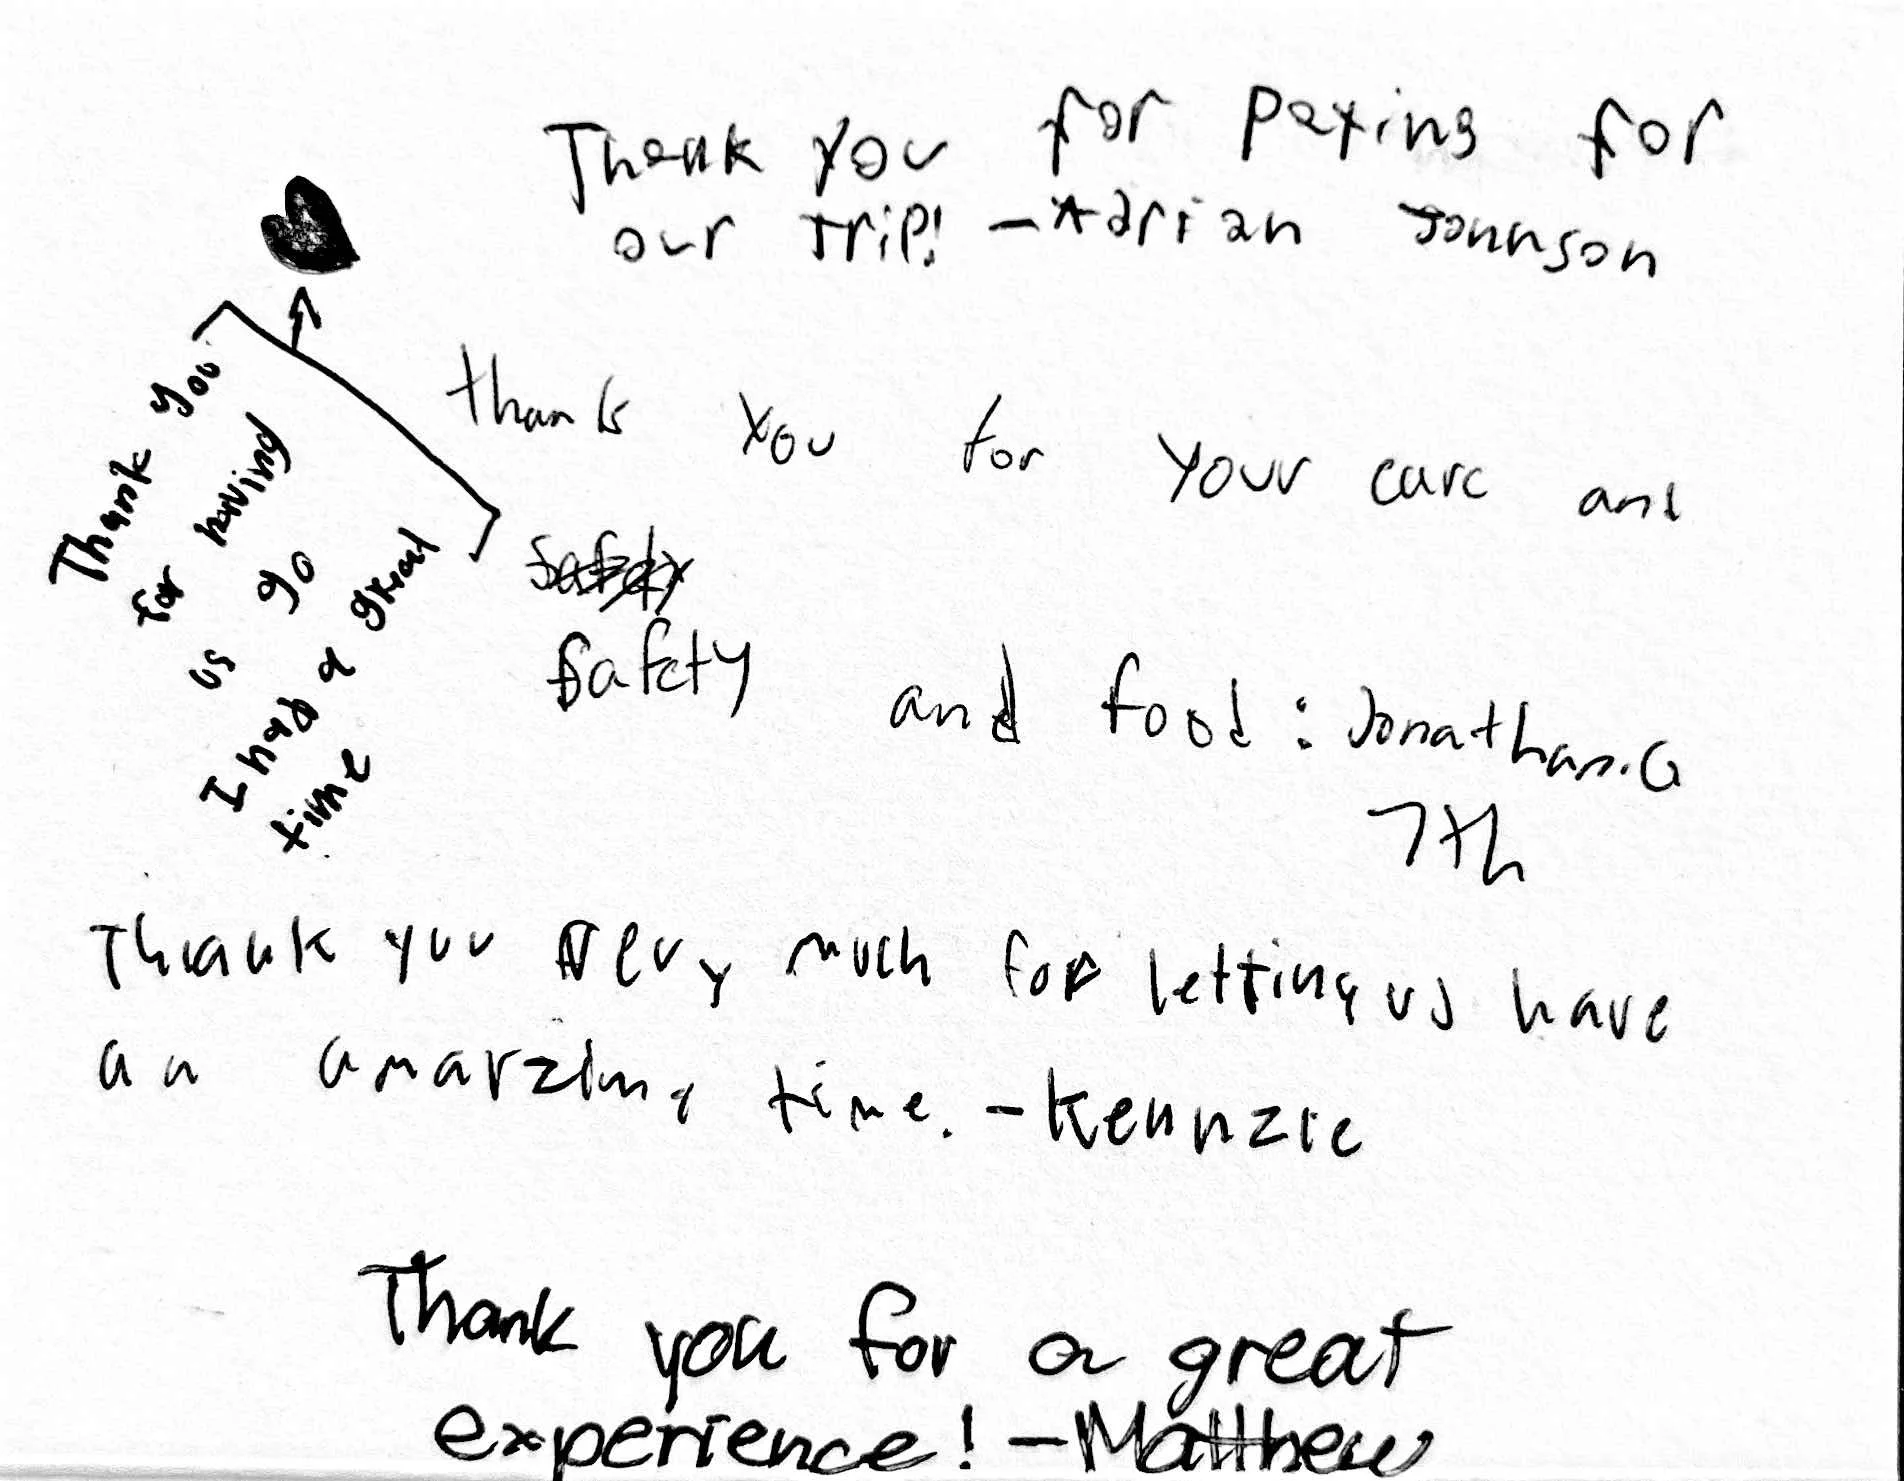 Thank you for paying for
our trip! - Adrian Johnson
Thank you
for having
us go
I had a great
time
thank you for your care and
safety
Safety and food: Jonathan.G
7th
Thank you very much for letting us have
an amarzing time. - Kennzie
Thank you for a great
experience! - Matthew